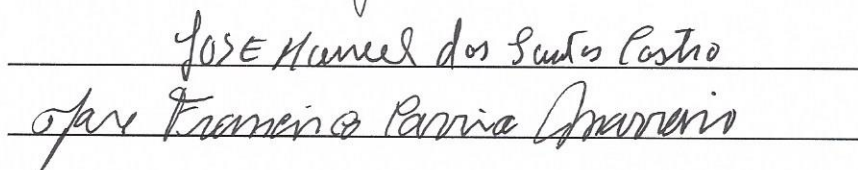 José Manuel dos Santos Castro
José Francisco Correia